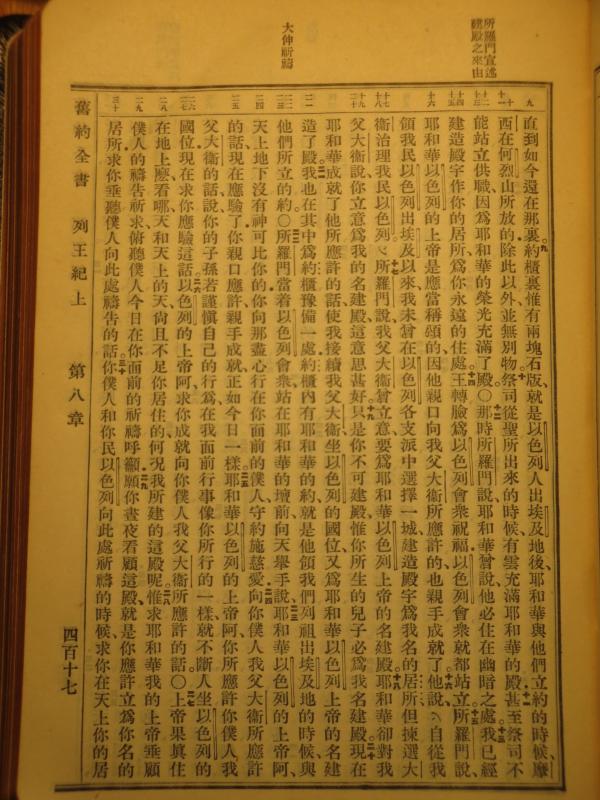 所羅門宣述
建殿之來由
大伸祈禱
九
十
十一
十二
十三
十四
十五
十六
十七
十八
十九
二十
二一
二二
二三
二四
二五
二六
二七
二八
二九
三十
直到如今還在那裏九約櫃裏惟有兩塊石版就是以色列人出埃及地後耶和華與他們立約的時候摩
西在何烈山所放的除此以外並無別物十祭司從聖所出來的時候有雲充滿耶和華的殿十一甚至祭司不
能站立供職因爲耶和華的榮光充滿了殿〇十二那時所羅門說耶和華曾說他必住在幽暗之處十三我已經
建造殿宇作你的居所爲你永遠的住處十四王轉臉爲以色列會衆祝福以色列會衆就都站立十五所羅門說
耶和華以色列的上帝是應當稱頌的因他親口向我父大衞所應許的也親手成就了他說十六自從我
領我民以色列出埃及以來我未曾在以色列各支派中選擇一城建造殿宇爲我名的居所但揀選大
衞治理我民以色列十七所羅門說我父大衞曾立意要爲耶和華以色列上帝的名建殿十八耶和華卻對我
父大衞說你立意爲我的名建殿這意思甚好十九只是你不可建殿惟你所生的兒子必爲我名建殿二十現在
耶和華成就了他所應許的話使我接續我父大衞坐以色列的國位又爲耶和華以色列上帝的名建
造了殿二一我也在其中爲約櫃豫備一處約櫃內有耶和華的約就是他領我們列祖出埃及地的時候與
他們所立的約〇二二所羅門當着以色列會衆站在耶和華的壇前向天舉手二三說耶和華以色列的上帝阿
天上地下沒有神可比你的你向那盡心行在你面前的僕人守約施慈愛二四向你僕人我父大衞所應許
的話現在應驗了你親口應許親手成就正如今日一樣二五耶和華以色列的上帝阿你所應許你僕人我
父大衞的話說你的子孫若謹愼自己的行爲在我面前行事像你所行的一樣就不斷人坐以色列的
國位現在求你應驗這話二六以色列的上帝阿求你成就向你僕人我父大衞所應許的話〇二七上帝果眞住
在地上麼看哪天和天上的天尚且不足你居住的何況我所建的這殿呢二八惟求耶和華我的上帝垂顧
僕人的禱告祈求俯聽僕人今日在你面前的祈禱呼籲二九願你晝夜看顧這殿就是你應許立爲你名的
居所求你垂聽僕人向此處禱告的話三十你僕人和你民以色列向此處祈禱的時候求你在天上你的居
舊約全書 列王紀上 第八章 四百十七